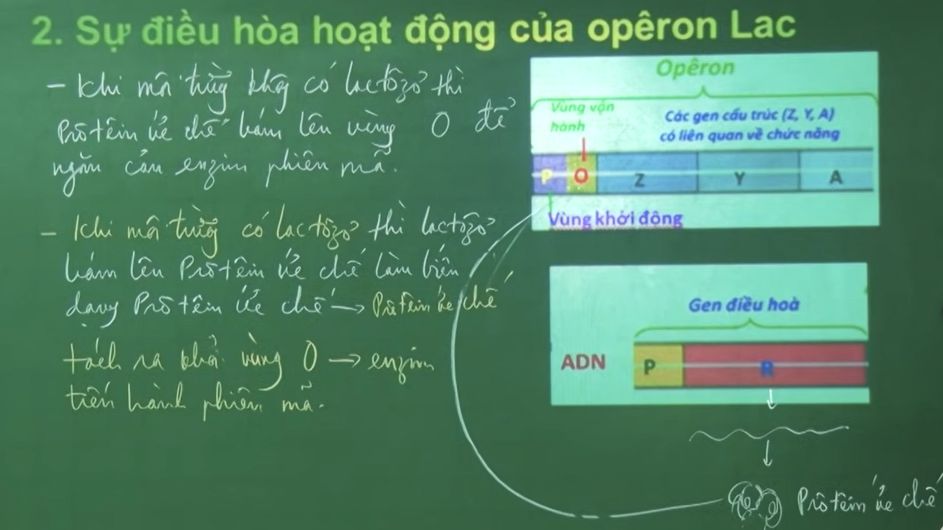 2. Sự điều hòa hoạt động của opêron Lac
- Khi môi trường không có lactôzơ thì
Prôtêin ức chế bám lên vùng O để
ngăn cản enzim phiên mã.
- Khi môi trường có lactôzơ thì lactôzơ
bám lên Prôtêin ức chế làm biến
dạng Prôtêin ức chế → Prôtêin ức chế
tách ra khỏi vùng O → enzim
tiến hành phiên mã.
Opêron
Vùng vận
hành
Các gen cấu trúc (Z, Y, A)
có liên quan về chức năng
P O Z Y A
Vùng khởi động
Gen điều hoà
ADN P R
Prôtêin ức chế